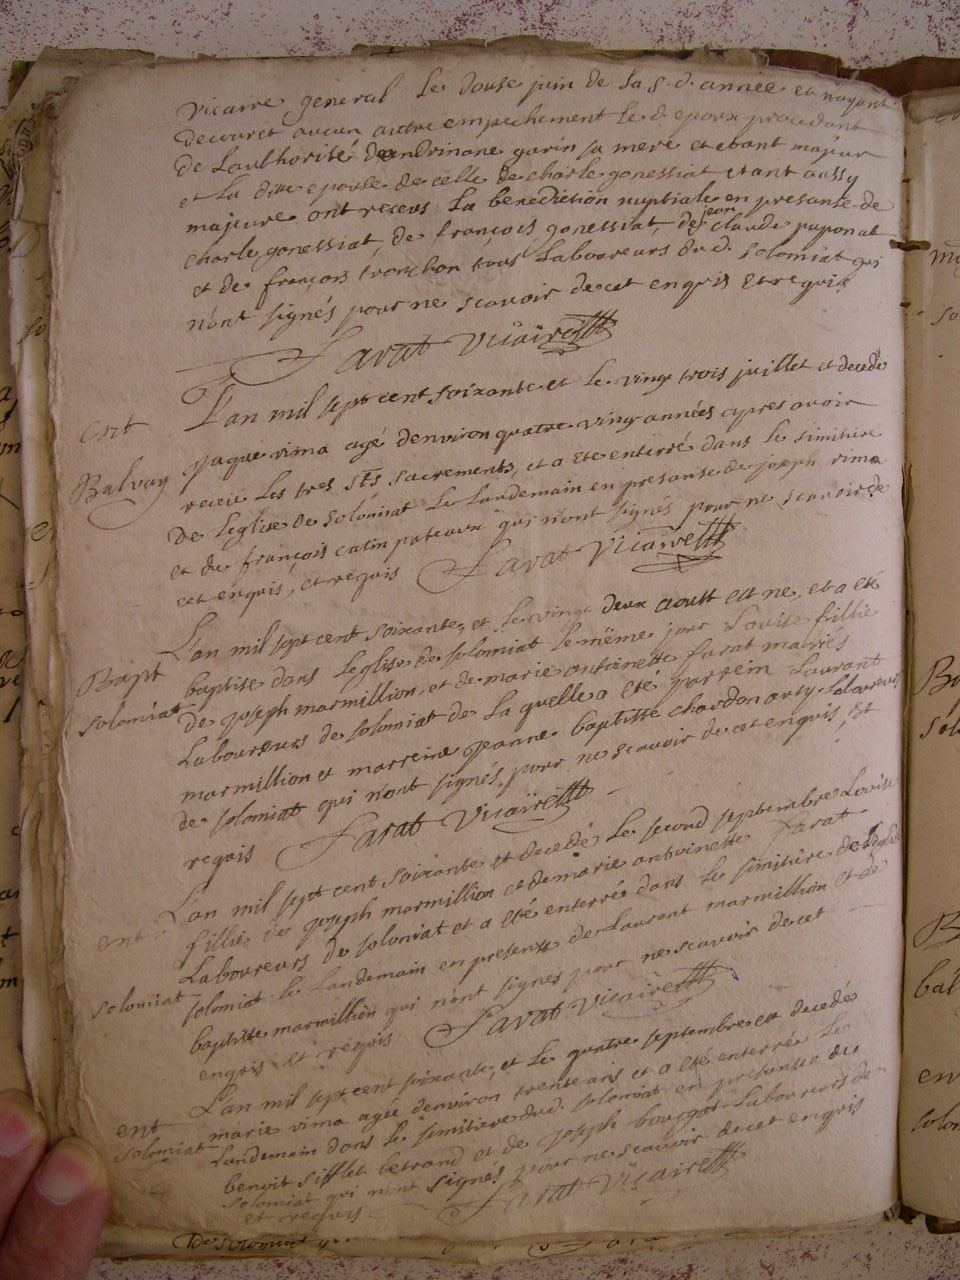 vicaire general le douse juin de la s. d. année et n'ayant
decouvert aucun autre empechement le d. epoux procedant
de l'authorité d'andrinane garin sa mere et etant majeur
et la dite epouse de celle de charle gonessiat etant aussy
majeure ont receus la benediction nuptiale en presance de
charle gonessiat, de françois gonessiat, de jean claude puponat
et de françois tronchon tous laboureurs dud. solomiat qui
n'ont signés pour ne scavoir de cet enquis et requis
farat vicaire
L'an mil sept cent soixante et le vingt trois juillet et decedé
ent
Balvay
jaque vima agé d'environ quatre vingt années apres avoir
receu les tres sts sacrements, et a eté enterré dans le simitiere
de l'eglise de solomiat le landemain en presanse de joseph vima
et de françois catin pateaux qui n'ont signés pour ne scavoir de
cet enquis, et requis farat vicaire
L'an mil sept cent soixante, et le vingt deux aoutt est ne, et a eté
Bapt
solomiat
baptise dans l'eglise de solomiat le même jour Louise fillie
de joseph marmillion, et de marie antoinette farat mariés
laboureurs de solomiat de la quelle a eté parrein laurant
marmillion et marreine jeanne baptitte chardon aussy laboureurs
de solomiat qui n'ont signés pour ne scavoir de cet enquis, et
requis farat vicaire
L'an mil sept cent soixante et decedé le second septembre Louise
ent
fillie de joseph marmillion et de marie antoinette farat
laboureurs de solomiat et a eté enterrée dans le simitière de l'eglise
solomiat
solomiat le landemain en presense de laurant marmillion et de
baptiste marmillion qui n'ont signes pour ne scavoir de cet
enquis et requis farat vicaire
L'an mil sept cent soixante, et le quatre septembre est decedée
ent
solomiat
marie vima agée denviron trente ans et a eté enterrée le
landemain dans le simitiere dud. solomiat en presense de
benoit sifflet betrand et de joseph bourgat laboureurs de
solomiat qui n'ont signés pour ne scavoir de cet enquis
et requis farat vicaire
de solomiat